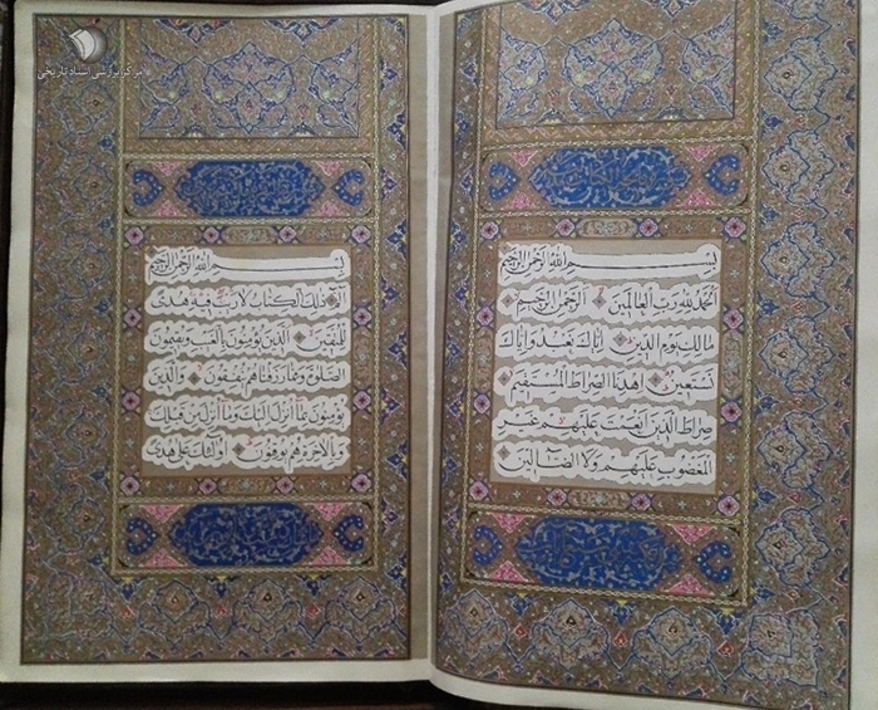 مرکز بررسی اسناد تاریخی
بِسْمِ اللهِ الرَّحْمٰنِ الرَّحِیمِ
اَلْحَمْدُ لِلّٰهِ رَبِّ الْعَالَمِینَ اَلرَّحْمٰنِ الرَّحِیمِ
مَالِكِ یَوْمِ الدِّینِ اِیَّاكَ نَعْبُدُ وَاِیَّاكَ
نَسْتَعِینُ اِهْدِنَا الصِّرَاطَ الْمُسْتَقِیمَ
صِرَاطَ الَّذِینَ اَنْعَمْتَ عَلَیْهِمْ غَیْرِ
الْمَغْضُوبِ عَلَیْهِمْ وَلَا الضَّالِّینَ
بِسْمِ اللهِ الرَّحْمٰنِ الرَّحِیمِ
الٓمٓ ذٰلِكَ الْكِتَابُ لَا رَیْبَ فِیهِ هُدًى
لِلْمُتَّقِینَ اَلَّذِینَ یُؤْمِنُونَ بِالْغَیْبِ وَیُقِیمُونَ
الصَّلٰوةَ وَمِمَّا رَزَقْنَاهُمْ یُنْفِقُونَ وَالَّذِینَ
یُؤْمِنُونَ بِمَا اُنْزِلَ اِلَیْكَ وَمَا اُنْزِلَ مِنْ قَبْلِكَ
وَبِالْاٰخِرَةِ هُمْ یُوقِنُونَ اُولٰئِكَ عَلٰى هُدًى